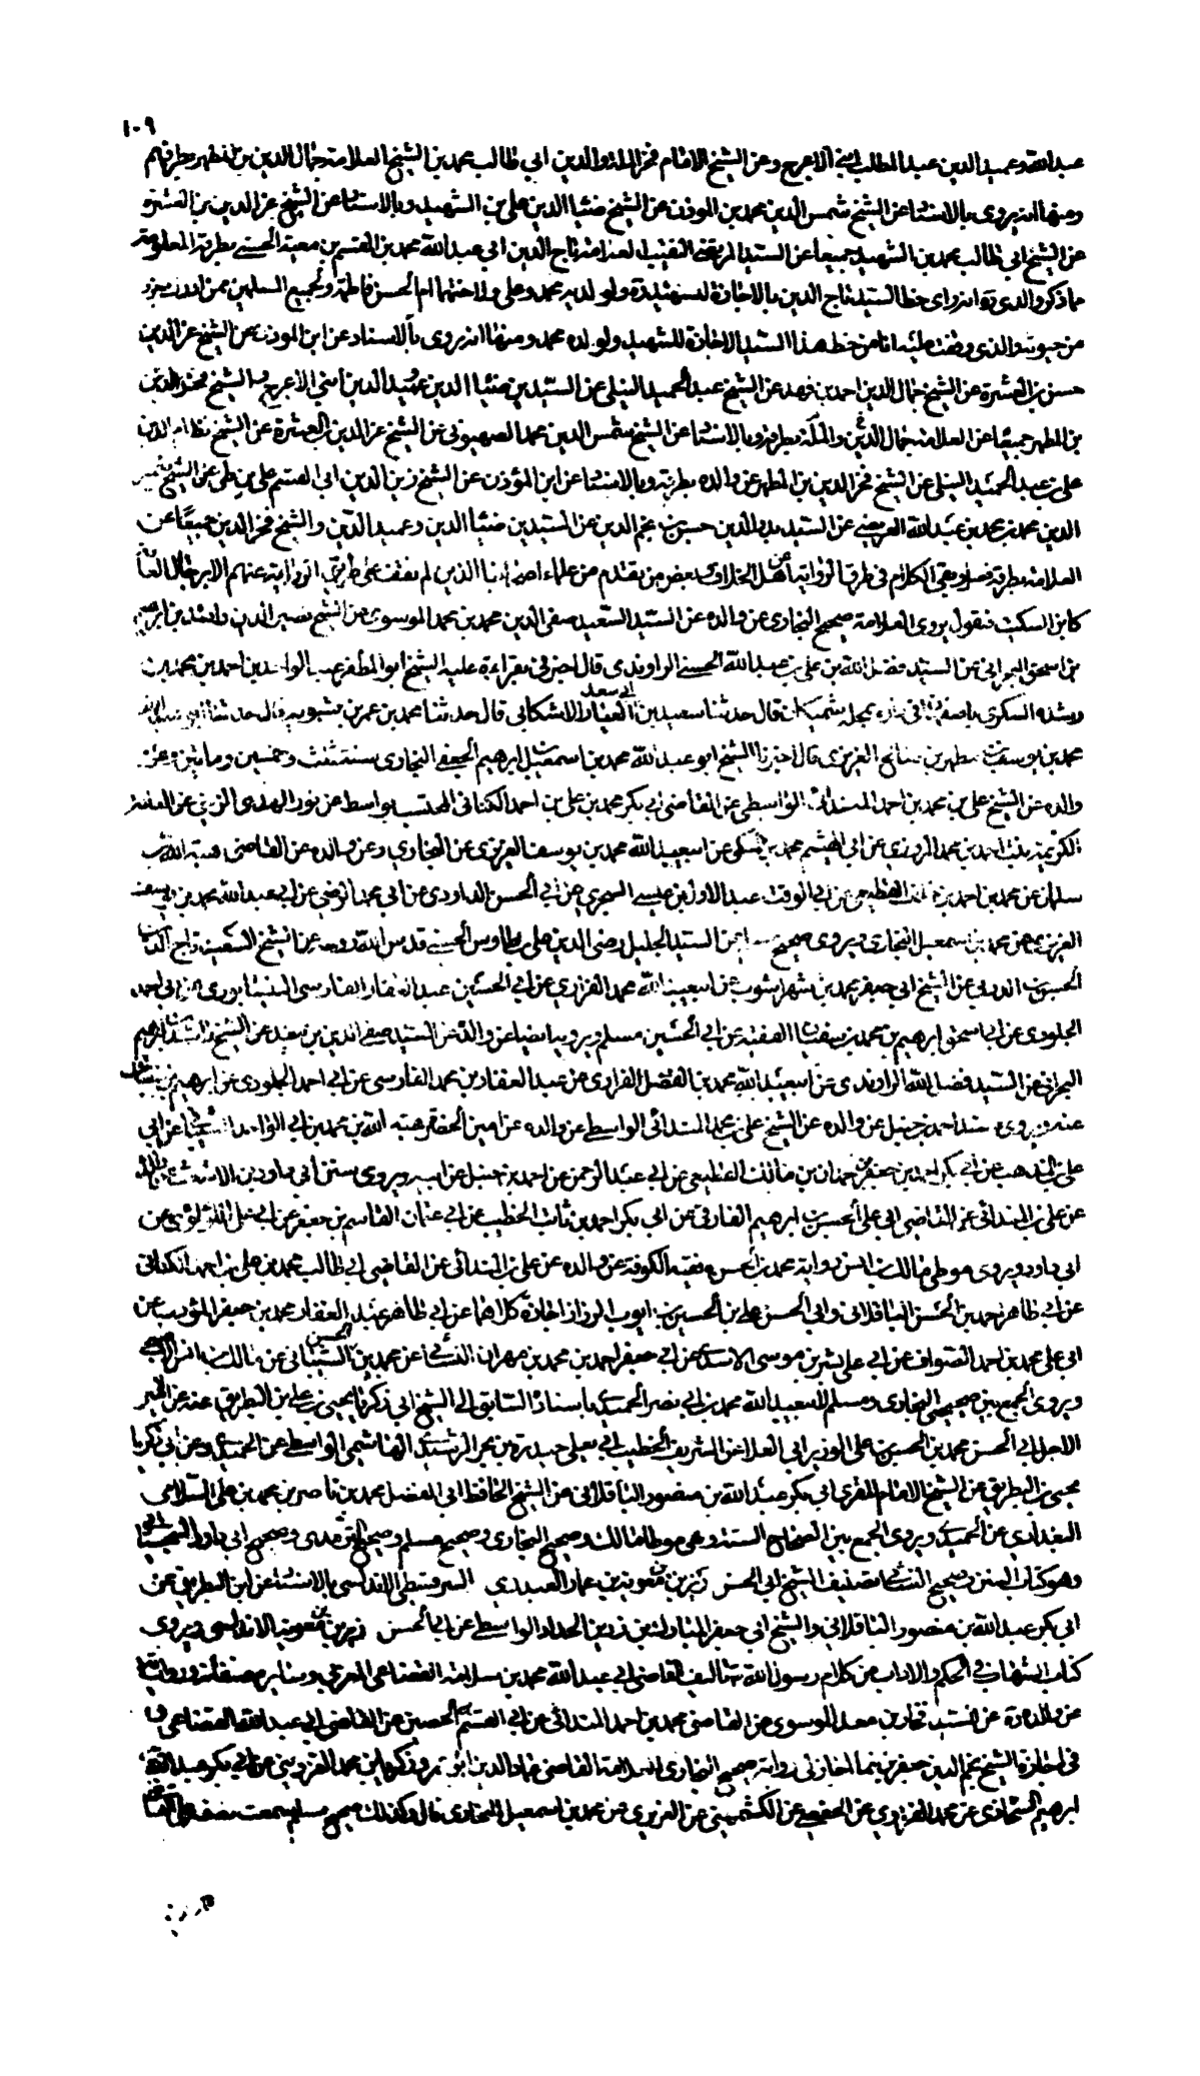 ١٠٩
عبدالله وعميد الدين عبد المطلب ابني الاعرج وعن الشيخ الامام فخر الملة والدين ابي طالب محمد بن الشيخ العلامة جمال الدين بن المطهر بطرقهم
ومنها انه يروى بالاسناد عن الشيخ شمس الدين محمد بن الموذن عن الشيخ ضياء الدين علي بن الشهيد وبالاسناد عن الشيخ عز الدين بن العشرة
عن الشيخ ابي طالب محمد بن الشهيد جميعا عن السيد المرتضى النقيب تاج الدين ابي عبدالله محمد بن القسم بن معية الحسني بطرقه المعلومة
مما ذكر والدي انه راى خط السيد تاج الدين بالاجازة للشهيد ولولديه محمد وعلي ولاختهما ام الحسن فاطمة ولجميع المسلمين ممن ادرك جزء
من حيوته والذي وقفت عليه انا من خط هذا السيد الاجازة للشهيد ولولده محمد ومنها انه يروى بالاسناد عن ابن الموذن عن الشيخ عز الدين
حسن بن العشرة عن الشيخ جمال الدين احمد بن فهد عن الشيخ عبد الحميد النيلي عن السيدين ضياء الدين وعميد الدين ابني الاعرج والشيخ فخر الدين
بن المطهر جميعا عن العلامة جمال الدين والملة بطرقه وبالاسناد عن الشيخ شمس الدين محمد الصهيوني عن الشيخ عز الدين بن العشرة عن الشيخ نظام الدين
علي بن عبد الحميد النيلي عن الشيخ فخر الدين بن المطهر عن والده بطرقه وبالاسناد عن ابن المؤذن عن الشيخ زين الدين ابي القسم علي بن طي عن الشيخ شمس
الدين محمد بن محمد بن عبدالله العريضي عن السيد بدر الدين حسن بن نجم الدين عن السيدين ضياء الدين وعميد الدين والشيخ فخر الدين جميعا عن
العلامة بطرقه فصل وبقي الكلام في طرق الرواية عن اهل الخلاف وبعض من تقدم من علماء اصحابنا الذين لم نقف على طريق الرواية عنهم الا برجال العامة
كابن السكيت فنقول يروى العلامة صحيح البخارى عن والده عن السيد السعيد صفي الدين محمد بن محمد الموسوي عن الشيخ نصير الدين راشد بن ابرهيم
بن اسحق البحراني عن السيد فضل الله بن علي بن عبدالله الحسني الراوندى قال اخبرني بقراءة عليه الشيخ ابو المظفر عبد الواحد بن احمد بن محمد بن
رشده السكري باصفهان في داره بمحلة قال حدثنا سعيد بن ابي سعد العيار الاشكابي قال حدثنا محمد بن عمر بن شبويه قال حدثنا
محمد بن يوسف بن مطهر بن صالح الفربرى قال اخبرنا الشيخ ابو عبدالله محمد بن اسمعيل بن ابرهيم الجعفي البخارى سنة ثلث وخمسين وماتين وعن
والده عن الشيخ علي بن محمد بن احمد المندائي الواسطي عن القاضي ابي بكر محمد بن علي بن احمد الكتاني المحتسب بواسط عن نور الهدى الزينبي عن
الكريمة بنت احمد بن محمد المروزي عن ابي الهيثم محمد بن مكي عن ابي عبدالله محمد بن يوسف الفربرى عن البخاري وعن والده عن القاضي هبة الله بن
سلمان عن محمد بن احمد عن ابي الوقت عبد الاول بن عيسى السجزي عن ابي الحسن الداودي عن ابي محمد السرخي عن ابي عبدالله محمد بن يوسف
الفربرى عن محمد بن اسمعيل البخارى ويروى صحيح مسلم عن السيد الجليل رضي الدين علي بن طاوس الحسني قدس الله روحه عن الشيخ السعيد تاج الدين
الحسن بن الدربي عن الشيخ ابي جعفر محمد بن شهراشوب عن ابي عبدالله محمد الفراوي عن ابي الحسين عبد الغفار الفارسي النيشابوري عن ابي احمد
الجلودى عن ابي اسحق ابرهيم بن محمد بن سفيان الفقيه عن ابي الحسين مسلم ويرويه ايضا عن والده عن السيد صفي الدين بن معد عن الشيخ راشد بن ابرهيم
البحراني عن السيد فضل الله الراوندى عن ابي عبدالله محمد بن الفضل الفراوى عن عبد الغفار بن محمد الفارسي عن ابي احمد الجلودى عن ابرهيم بن سفيان
عنه ويروى مسند احمد بن حنبل عن والده عن الشيخ علي بن محمد المندائي الواسطي عن والده عن امين الحضرة هبة الله بن محمد بن ابي الواحد الشيباني عن ابي
علي بن المذهب عن ابي بكر احمد بن جعفر بن حمدان بن مالك القطيعي عن ابي عبد الرحمن عن احمد بن حنبل عن ابيه ويروى سنن ابي داود بن الاشعث عن والده
عن علي بن المندائي عن القاضي ابي علي الحسن بن ابرهيم الفارقي عن ابي بكر احمد بن ثابت الخطيب عن ابي عثمان القاسم بن جعفر عن ابي علي اللؤلؤي عن
ابي داود ويروى موطى مالك بن انس رواية محمد بن الحسن فقيه الكوفة عن والده عن علي بن المندائي عن القاضي ابي طالب محمد بن علي بن احمد الكتاني
عن ابي طاهر احمد بن الحسن الباقلاني وابي الحسن علي بن الحسين بن ايوب البزاز اجازة كلاهما عن ابي طاهر عبد الغفار محمد بن جعفر المؤدب عن
ابي علي محمد بن احمد الصواف عن ابي علي بشر بن موسى الاسدي عن ابي جعفر احمد بن محمد بن مهران النسائي عن محمد بن الحسن الشيباني عن مالك بن انس الاصبحي
ويروى الجمع بين صحيحي البخارى ومسلم لابي عبدالله محمد بن ابي نصر الحميدي باسناده السابق الى الشيخ ابي زكريا يحيى بن علي بن البطريق عنه عن الامير
الاجل ابي الحسن محمد بن الحسين بن علي الوزير ابي العلا عن الشريف الخطيب ابي يعلى حيدرة بن بحر الرشيدي الهاشمي الواسطي عن الحميدي وعن ابي زكريا
يحيى بن البطريق عن الشيخ الامام المقرى ابي بكر عبدالله بن منصور الباقلاني عن الشيخ الحافظ ابي الفضل محمد بن ناصر بن محمد بن علي السلامي
البغدادي عن الحميدي ويروى الجمع بين الصحاح الستة وهي موطا مالك وصحيح البخارى وصحيح مسلم وصحيح الترمذى وصحيح ابي داود السجستاني
وهو كتاب السنن وصحيح النسائي تصنيف الشيخ ابي الحسن رزين بن معوية بن عمار العبدري السرقسطي الاندلسي بالاسناد عن ابن البطريق عن
ابي بكر عبدالله بن منصور الباقلاني والشيخ ابي جعفر المبارك بن رزين الحداد الواسطي عن ابي الحسن رزين بن معوية الاندلسي ويروى
كتاب الشهاب في الحكم والاداب من كلام رسول الله تاليف القاضي ابي عبدالله محمد بن سلامة القضاعي المغربي وساير مصنفاته ورواياته
عن والده عن السيد فخار بن معد الموسوي عن القاضي محمد بن احمد المندائي عن ابي القسم بن الحصين عن القاضي ابي عبدالله القضاعي
في اجازة الشيخ نجم الدين جعفر بن نما اجاز لي رواية صحيح البخارى العلامة القاضي عماد الدين ابو زكريا بن محمد القزويني عن ابي بكر عبدالله بن
ابرهيم الشحاذى عن محمد الفراوي عن الحفصي عن الكشميهني عن الفربري عن محمد بن اسمعيل البخارى قال وكذلك صحيح مسلم سمعت نصفه على القاضي